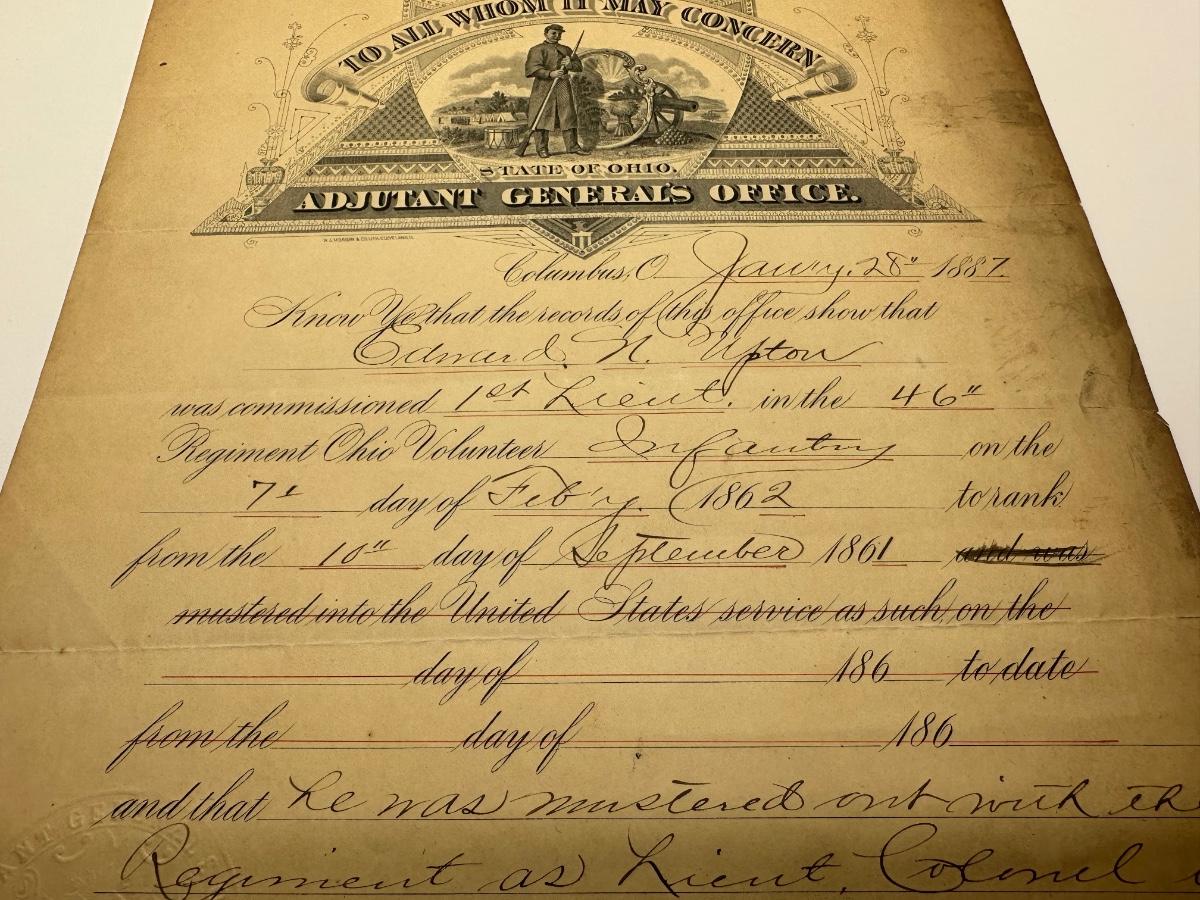 TO ALL WHOM IT MAY CONCERN
STATE OF OHIO.
ADJUTANT GENERAL'S OFFICE.
Columbus, O. Jan'ry. 28" 1887
Know Ye that the records of this office show that
Edward N. Upton
was commissioned 1st Lieut. in the 46"
Regiment Ohio Volunteer Infantry on the
7" day of Feb'ry. 1862 to rank
from the 10" day of September 1861 and was
mustered into the United States service as such, on the
day of 186 to date
from the day of 186
and that he was mustered out with th
Regiment as Lieut. Colonel